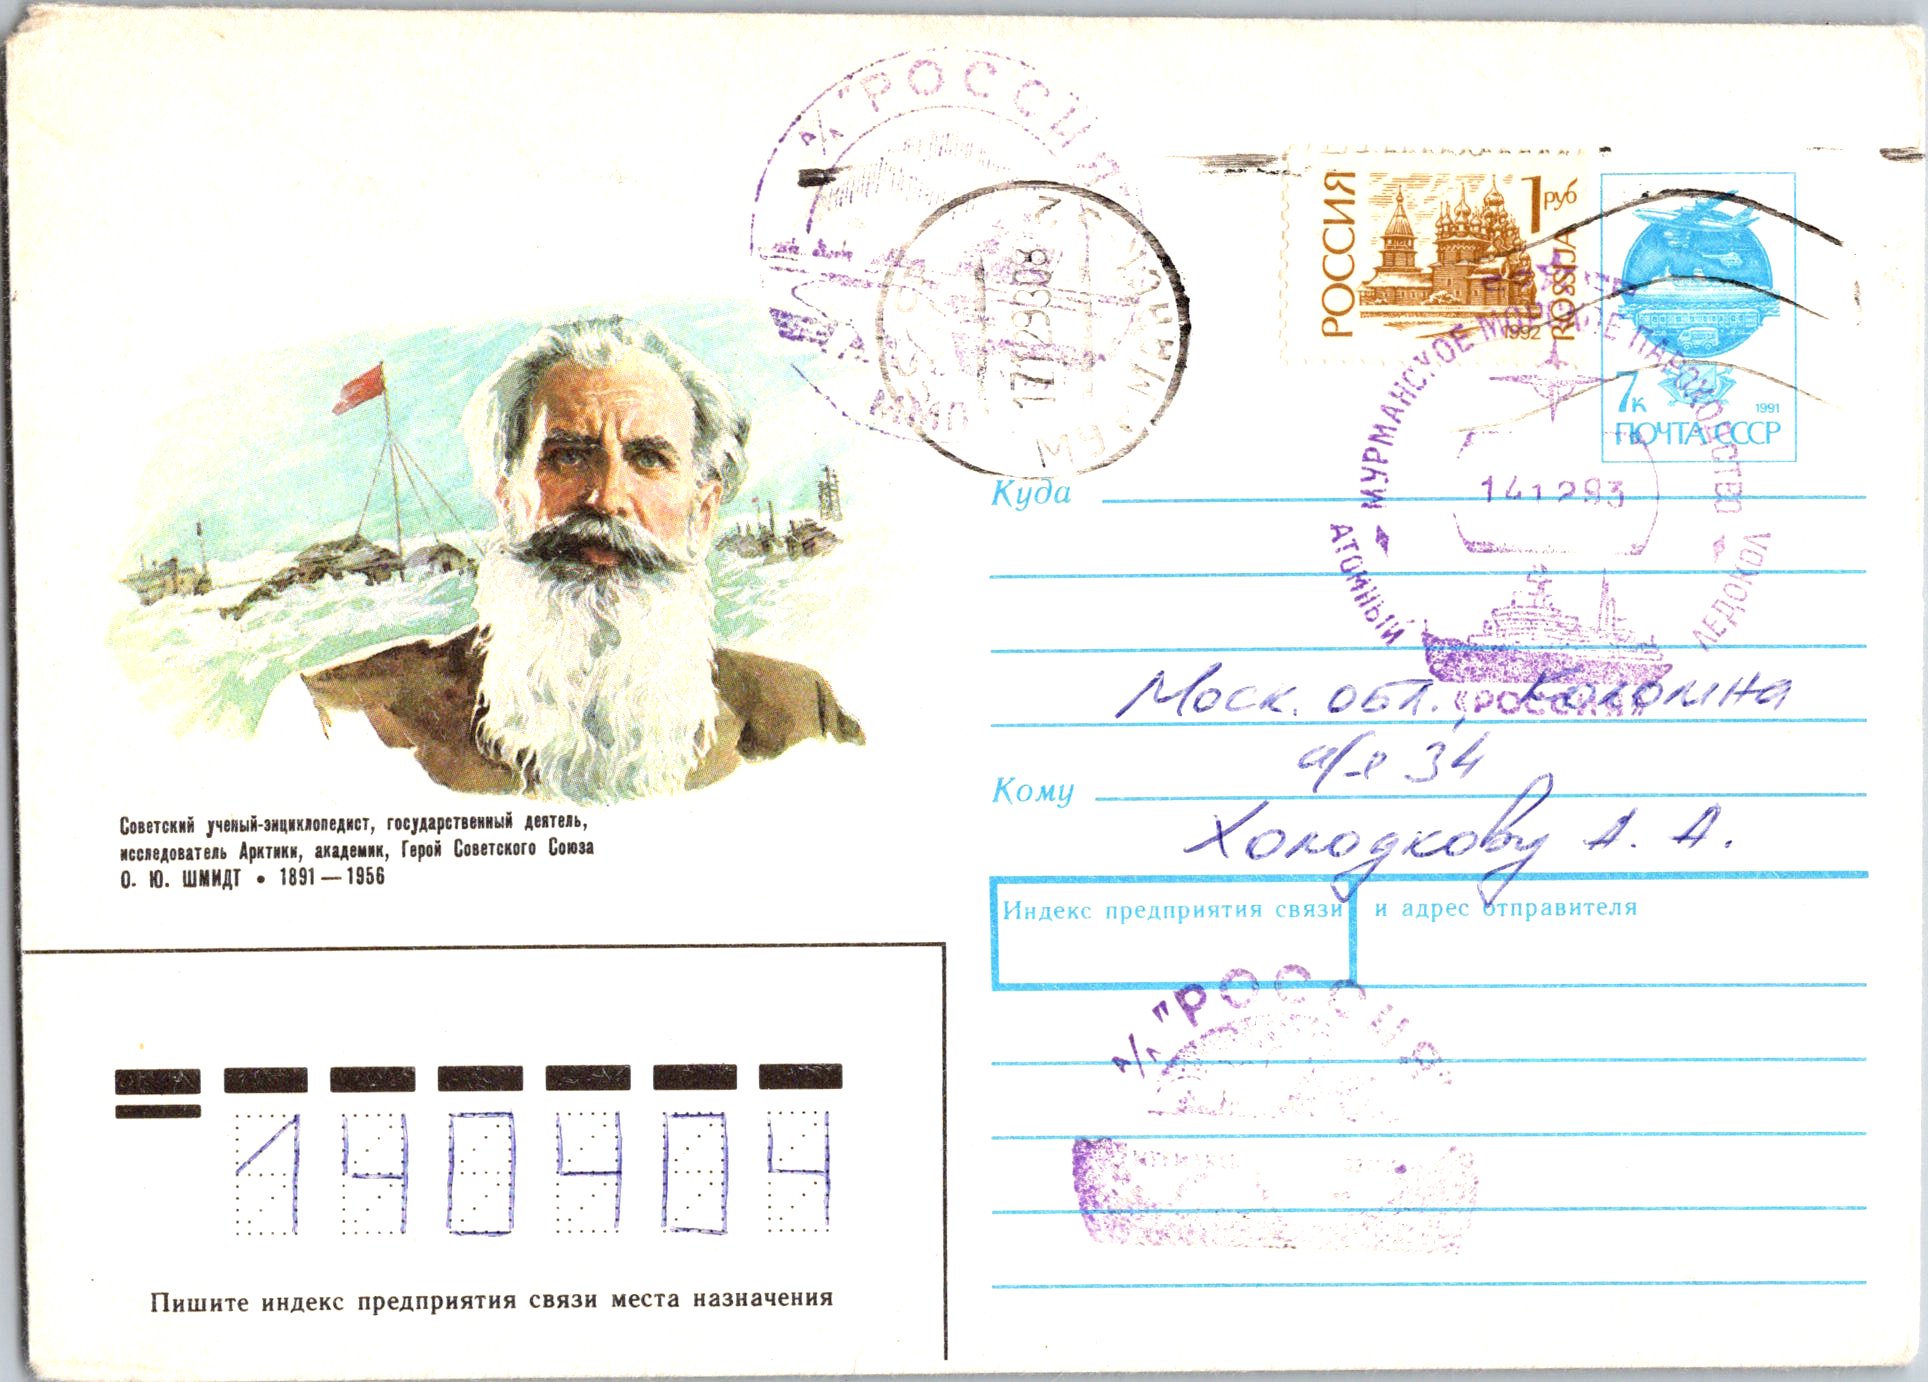 А/Л "РОССИЯ"
ММП
171293 08
МУРМАНСК
РОССИЯ
1 руб
ROSSIJA
1992
7к
1991
ПОЧТА СССР
МУРМАНСКОЕ МОРСКОЕ ПАРОХОДСТВО
141293
АТОМНЫЙ ЛЕДОКОЛ
«РОССИЯ»
Советский ученый-энциклопедист, государственный деятель,
исследователь Арктики, академик, Герой Советского Союза
О. Ю. ШМИДТ • 1891—1956
Куда
Моск. обл., Коломна
а/я 34
Кому
Холодкову А. А.
Индекс предприятия связи и адрес отправителя
А/Л "РОССИЯ"
140404
Пишите индекс предприятия связи места назначения